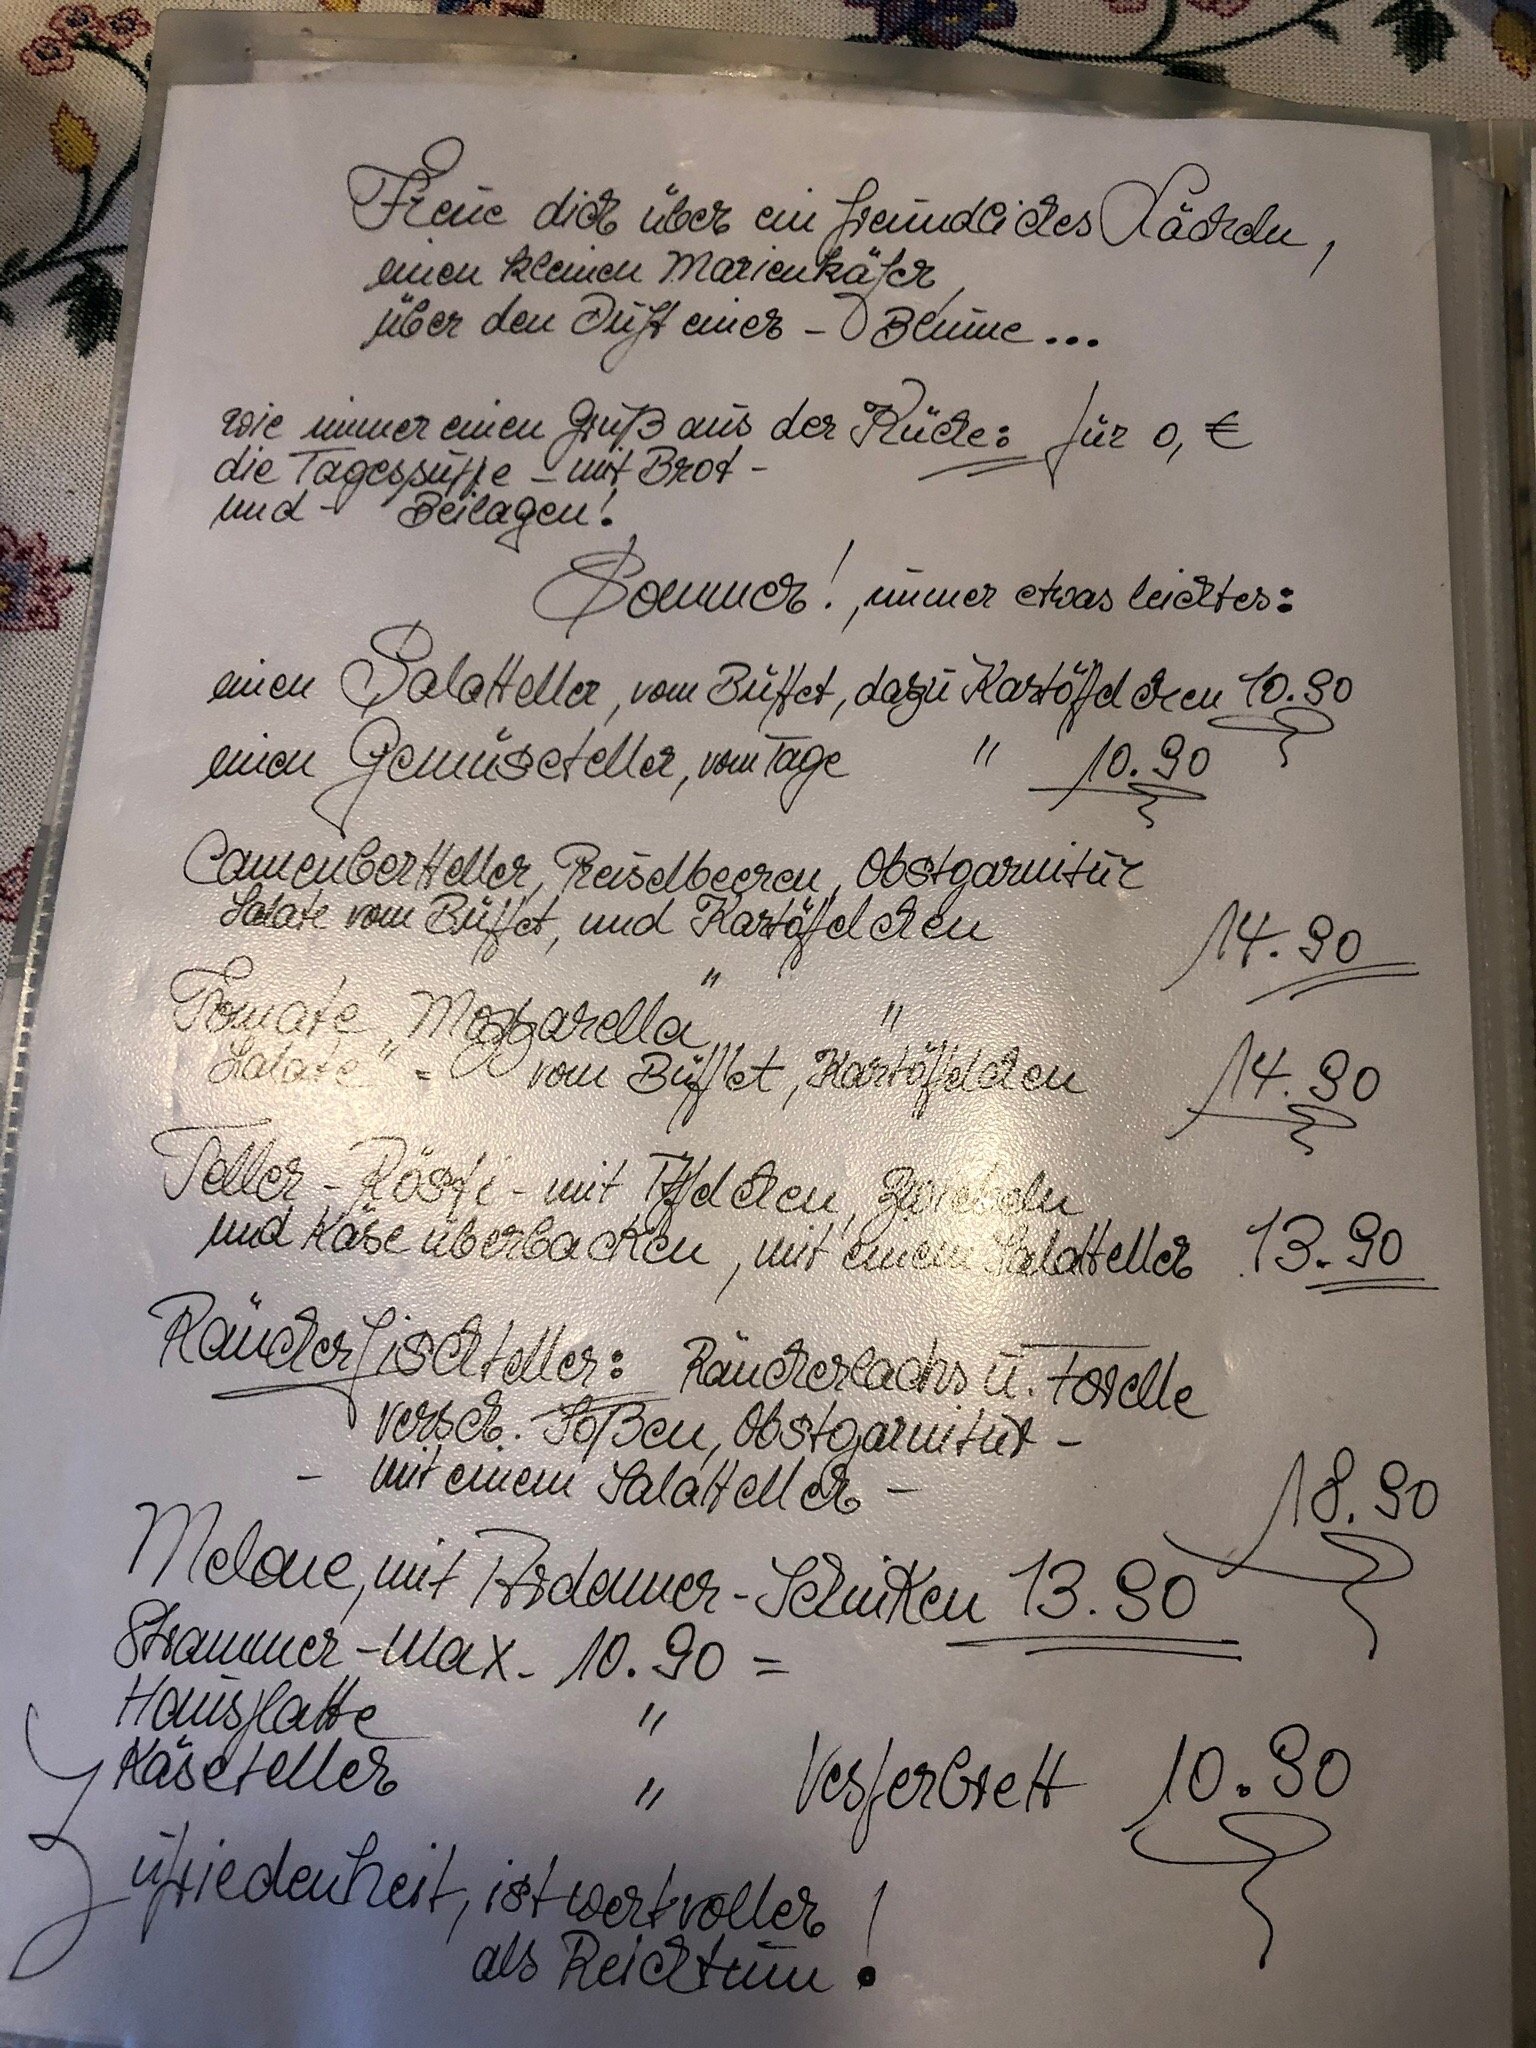 Freue dich über ein freundliches Lächeln,
einen kleinen Marienkäfer,
über den Duft einer - Blume...
wie immer einen Gruß aus der Küche: für 0,€
die Tagessuppe - mit Brot -
und - Beilagen!
Sommer!, immer etwas leichtes:
einen Salatteller, vom Büffet, dazu Kartöffelchen 10.90
einen Gemüseteller, vom Tage " 10.90
Camembertteller, Preiselbeeren, Obstgarnitur
Salate vom Büffet, und Kartöffelchen 14.90
Tomate "Mozzarella" "
Salate" = vom Büffet, Kartöffelchen 14.90
Teller - Rösti - mit Äpfelchen, Zwiebeln
und Käse überbacken, mit einem Salatteller 13.90
Räucherfischteller: Räucherlachs u. Forelle
versch. Soßen, Obstgarnitur -
- mit einem Salatteller - 18.90
Melone, mit Ardenner-Schinken 13.90
Strammer-Max- 10.90 =
Hausplatte "
Käseteller " Vesperbrett 10.90
Zufriedenheit, ist wertvoller
als Reichtum!